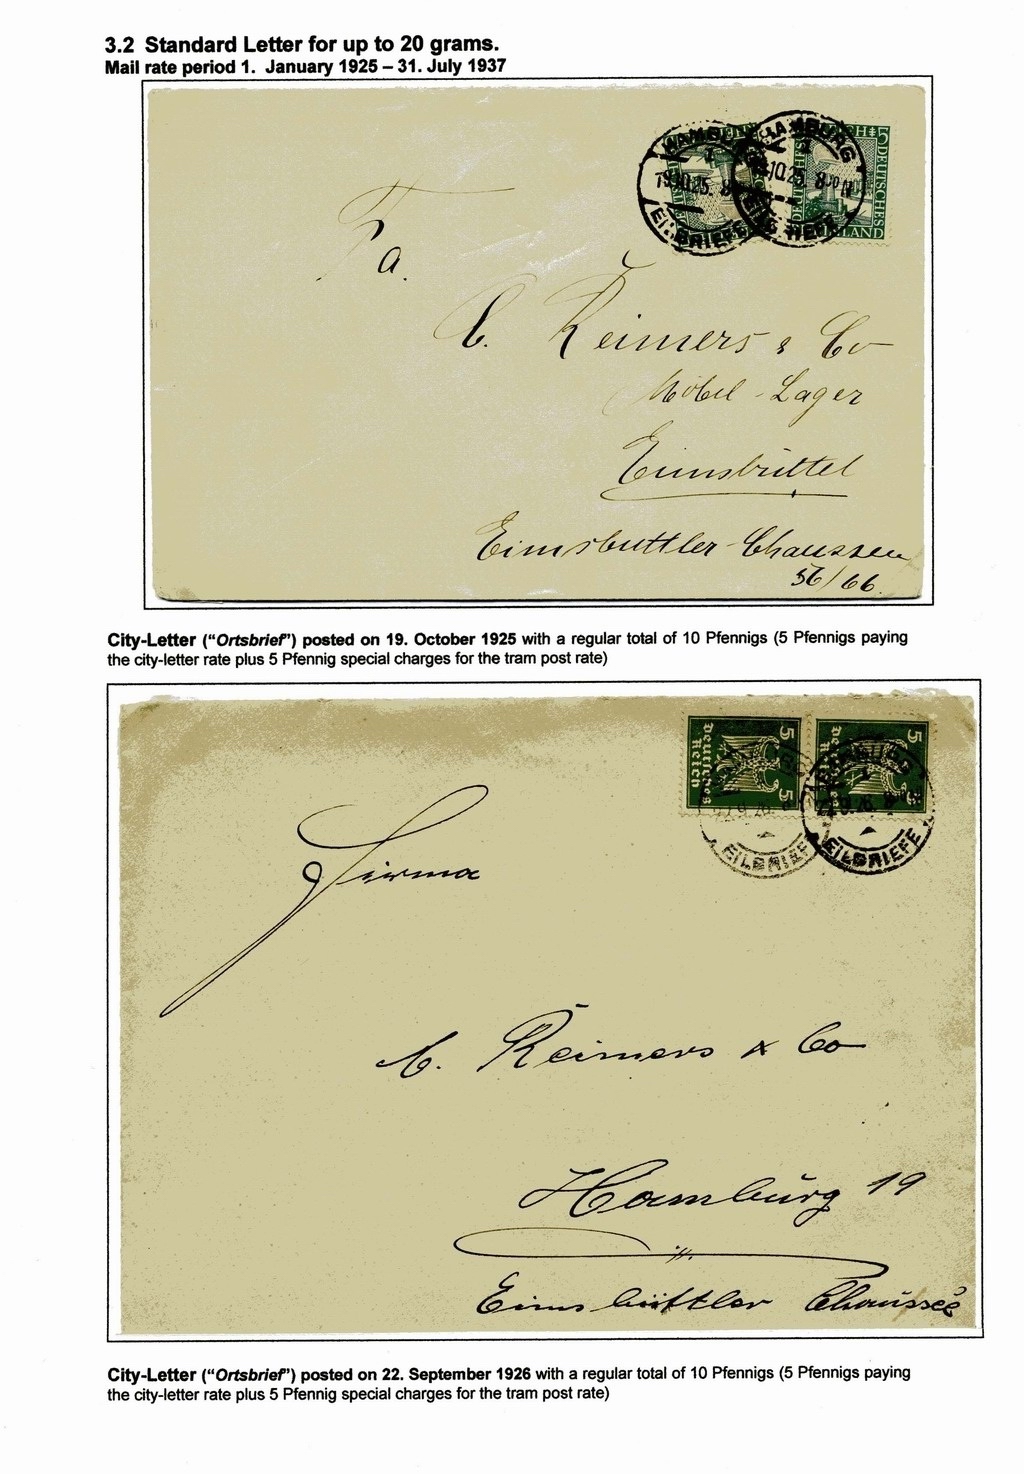 3.2 Standard Letter for up to 20 grams.
Mail rate period 1. January 1925 – 31. July 1937
HAMBURG
1
19.10.25. 8
EILBRIEFE
HAMBURG
1
.10.25. 8
5 DEUTSCHES
LAND
Fa.
C. Reimers & Co
Möbel-Lager
Eimsbüttel
Eimsbüttler Chaussee
56/66.
City-Letter (“Ortsbrief”) posted on 19. October 1925 with a regular total of 10 Pfennigs (5 Pfennigs paying
the city-letter rate plus 5 Pfennig special charges for the tram post rate)
5 5
Deutsches
Reich
5
22.9.26.
EILBRIEFE
22.9.26.
EILBRIEFE
Firma
C. Reimers & Co
Hamburg 19
Eimsbüttler Chaussee
City-Letter (“Ortsbrief”) posted on 22. September 1926 with a regular total of 10 Pfennigs (5 Pfennigs paying
the city-letter rate plus 5 Pfennig special charges for the tram post rate)